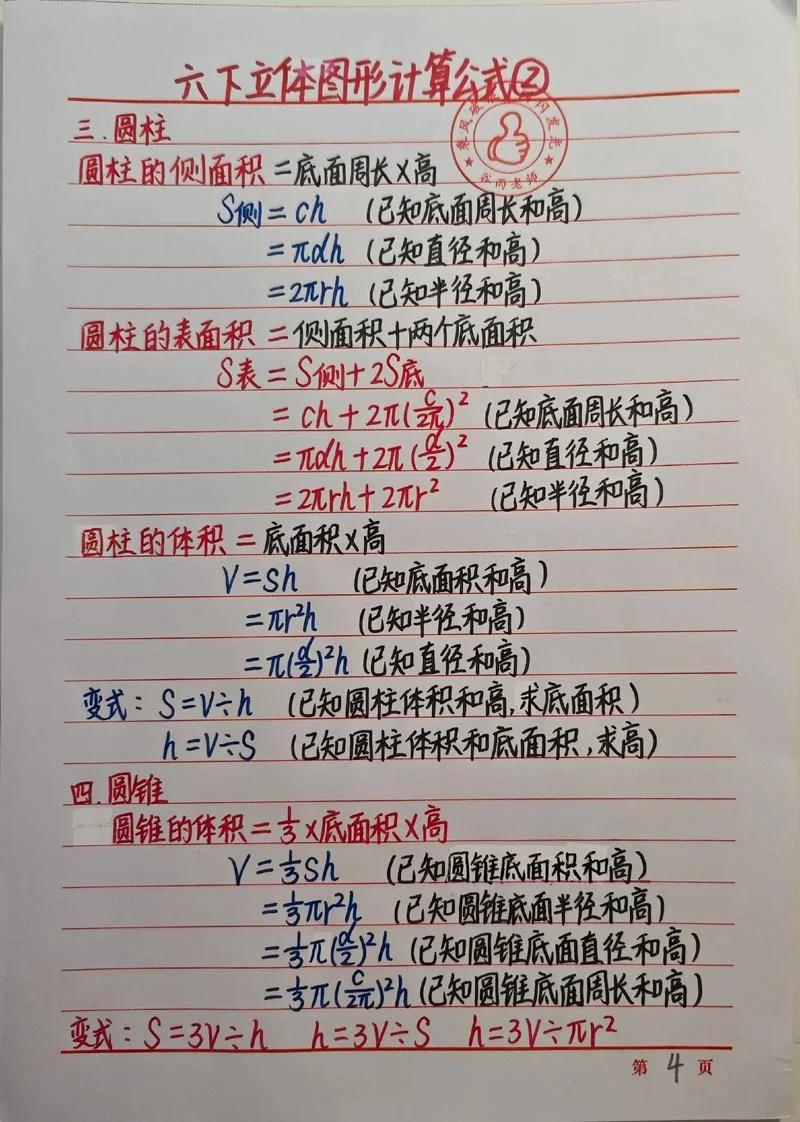 六下立体图形计算公式②
三.圆柱
圆柱的侧面积=底面周长×高
S侧=ch (已知底面周长和高)
=πdh (已知直径和高)
=2πrh (已知半径和高)
圆柱的表面积=侧面积+两个底面积
S表=S侧+2S底
=ch+2π(c/2π)² (已知底面周长和高)
=πdh+2π(d/2)² (已知直径和高)
=2πrh+2πr² (已知半径和高)
圆柱的体积=底面积×高
V=Sh (已知底面积和高)
=πr²h (已知半径和高)
=π(d/2)²h (已知直径和高)
变式:S=V÷h (已知圆柱体积和高,求底面积)
h=V÷S (已知圆柱体积和底面积,求高)
四.圆锥
圆锥的体积=1/3×底面积×高
V=1/3Sh (已知圆锥底面积和高)
=1/3πr²h (已知圆锥底面半径和高)
=1/3π(d/2)²h (已知圆锥底面直径和高)
=1/3π(c/2π)²h (已知圆锥底面周长和高)
变式:S=3V÷h h=3V÷S h=3V÷πr²
第 4 页